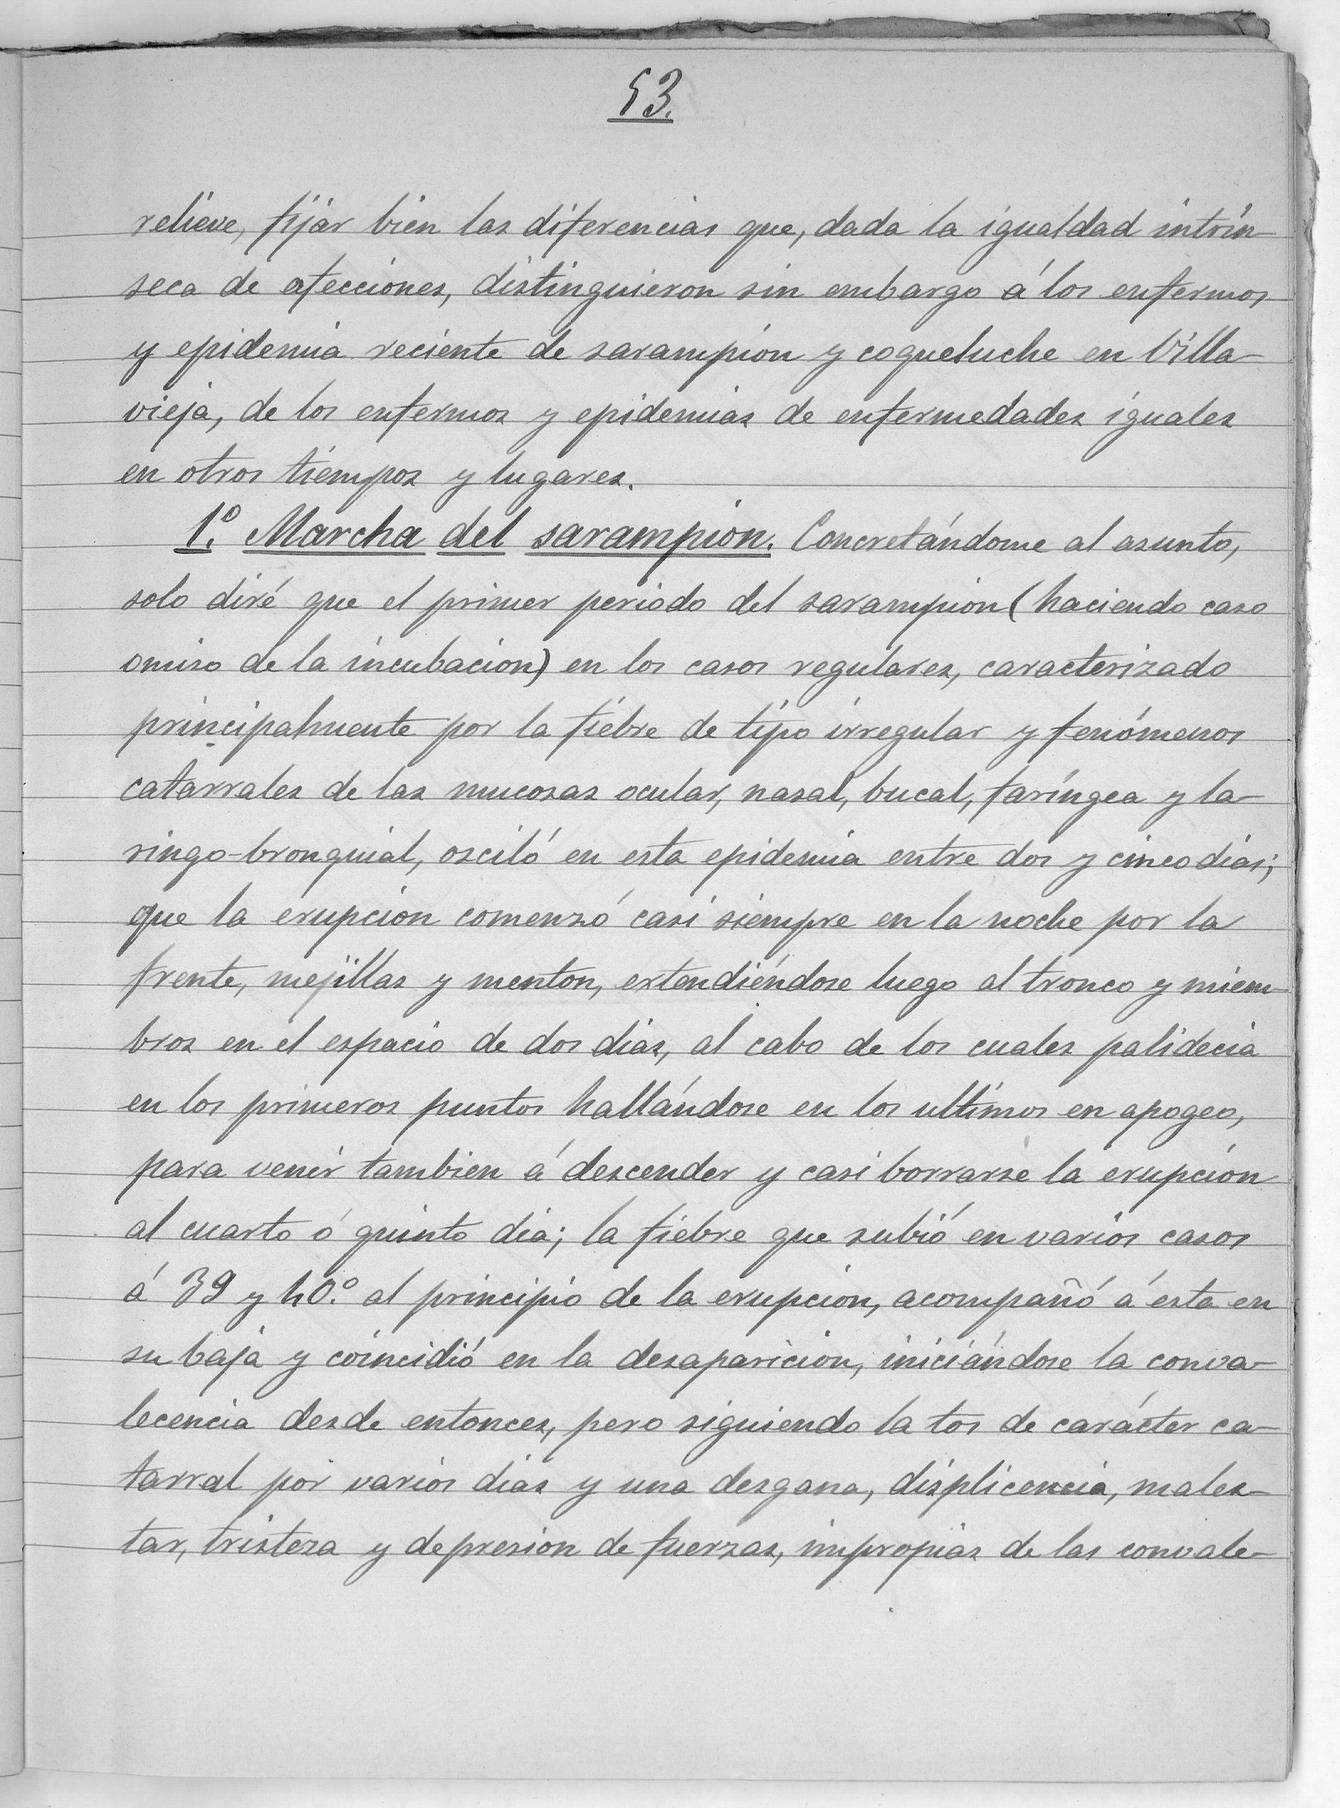 53.
relieve, fijar bien las diferencias que, dada la igualdad intrín-
seca de afecciones, distinguieron sin embargo á los enfermos
y epidemia reciente de sarampión y coqueluche en Villa-
vieja, de los enfermos y epidemias de enfermedades iguales
en otros tiempos y lugares.
1.º Marcha del sarampión. Concretándome al asunto,
solo diré que el primer periodo del sarampión (haciendo caso
omiso de la incubación) en los casos regulares, caracterizado
principalmente por la fiebre de tipo irregular y fenómenos
catarrales de las mucosas ocular, nasal, bucal, faríngea y la-
ringo-bronquial, osciló en esta epidemia entre dos y cinco dias;
que la erupción comenzó casi siempre en la noche por la
frente, mejillas y menton, extendiéndose luego al tronco y miem-
bros en el espacio de dos dias, al cabo de los cuales palidecia
en los primeros puntos hallándose en los ultimos en apogeo,
para venir tambien á descender y casi borrarse la erupción
al cuarto ó quinto dia; la fiebre que subió en varios casos
á 39 y 40.º al principio de la erupción, acompañó á esta en
su baja y coincidió en la desaparición, iniciándose la conva-
lecencia desde entonces, pero siguiendo la tos de carácter ca-
tarral por varios dias y una desgana, displicencia, males-
tar, tristeza y depresion de fuerzas, impropias de las convale-